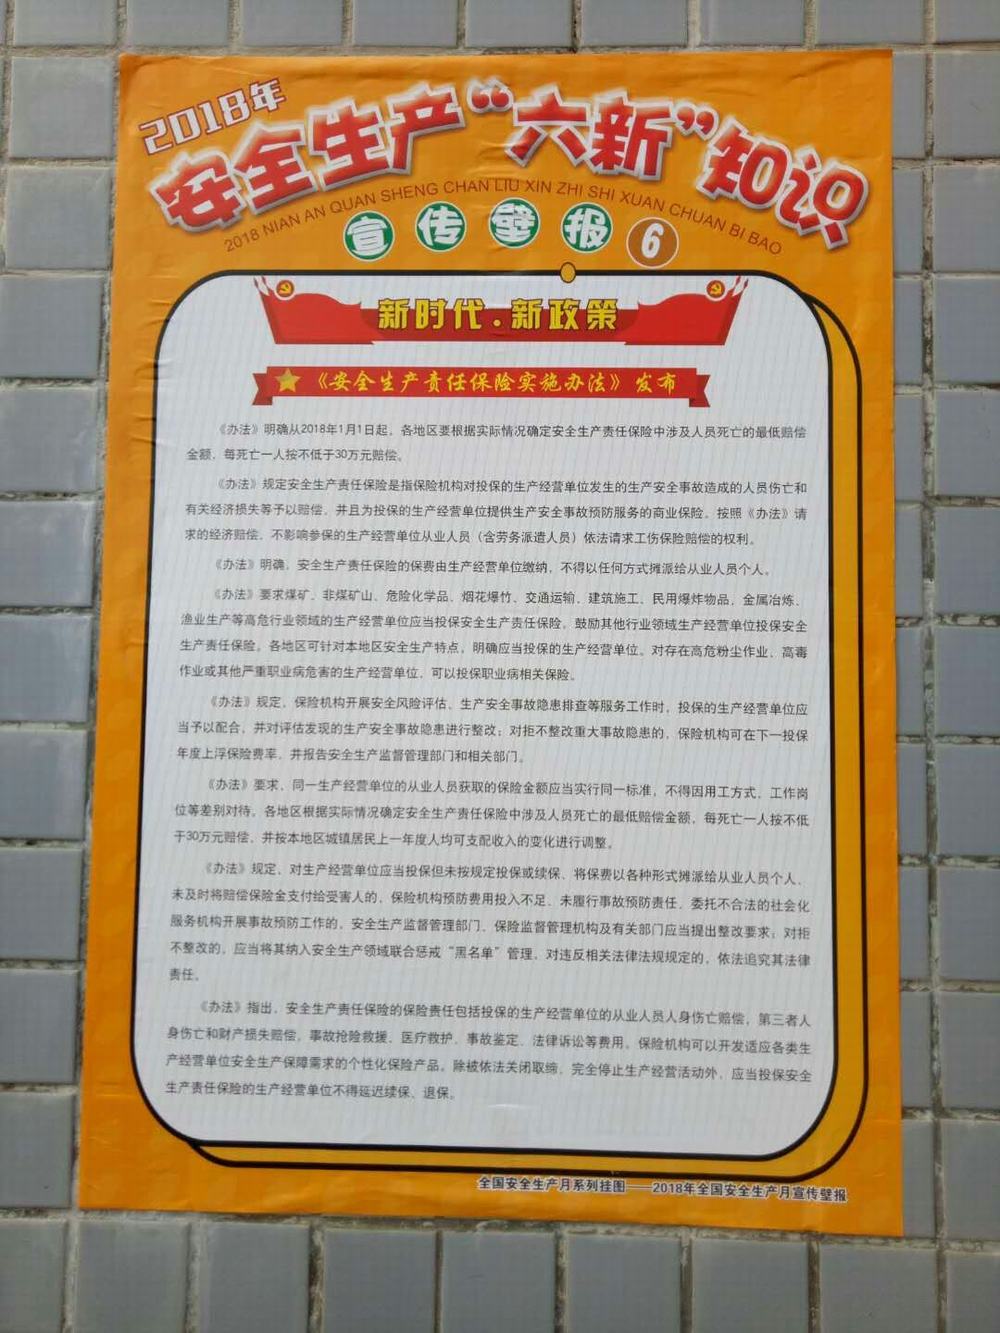 2018年
安全生产“六新”知识
2018 NIAN AN QUAN SHENG CHAN LIU XIN ZHI SHI XUAN CHUAN BI BAO
宣传壁报 6
新时代.新政策
《安全生产责任保险实施办法》发布
《办法》明确从2018年1月1日起，各地区要根据实际情况确定安全生产责任保险中涉及人员死亡的最低赔偿
金额，每死亡一人按不低于30万元赔偿。
《办法》规定安全生产责任保险是指保险机构对投保的生产经营单位发生的生产安全事故造成的人员伤亡和
有关经济损失等予以赔偿，并且为投保的生产经营单位提供生产安全事故预防服务的商业保险。按照《办法》请
求的经济赔偿，不影响参保的生产经营单位从业人员（含劳务派遣人员）依法请求工伤保险赔偿的权利。
《办法》明确，安全生产责任保险的保费由生产经营单位缴纳，不得以任何方式摊派给从业人员个人。
《办法》要求煤矿、非煤矿山、危险化学品、烟花爆竹、交通运输、建筑施工、民用爆炸物品、金属冶炼、
渔业生产等高危行业领域的生产经营单位应当投保安全生产责任保险。鼓励其他行业领域生产经营单位投保安全
生产责任保险。各地区可针对本地区安全生产特点，明确应当投保的生产经营单位。对存在高危粉尘作业、高毒
作业或其他严重职业病危害的生产经营单位，可以投保职业病相关保险。
《办法》规定，保险机构开展安全风险评估、生产安全事故隐患排查等服务工作时，投保的生产经营单位应
当予以配合，并对评估发现的生产安全事故隐患进行整改；对拒不整改重大事故隐患的，保险机构可在下一投保
年度上浮保险费率，并报告安全生产监督管理部门和相关部门。
《办法》要求，同一生产经营单位的从业人员获取的保险金额应当实行同一标准，不得因用工方式、工作岗
位等差别对待。各地区根据实际情况确定安全生产责任保险中涉及人员死亡的最低赔偿金额，每死亡一人按不低
于30万元赔偿，并按本地区城镇居民上一年度人均可支配收入的变化进行调整。
《办法》规定，对生产经营单位应当投保但未按规定投保或续保、将保费以各种形式摊派给从业人员个人、
未及时将赔偿保险金支付给受害人的，保险机构预防费用投入不足、未履行事故预防责任、委托不合法的社会化
服务机构开展事故预防工作的，安全生产监督管理部门、保险监督管理机构及有关部门应当提出整改要求；对拒
不整改的，应当将其纳入安全生产领域联合惩戒“黑名单”管理，对违反相关法律法规规定的，依法追究其法律
责任。
《办法》指出，安全生产责任保险的保险责任包括投保的生产经营单位的从业人员人身伤亡赔偿，第三者人
身伤亡和财产损失赔偿，事故抢险救援、医疗救护、事故鉴定、法律诉讼等费用。保险机构可以开发适应各类生
产经营单位安全生产保障需求的个性化保险产品。除被依法关闭取缔、完全停止生产经营活动外，应当投保安全
生产责任保险的生产经营单位不得延迟续保、退保。
全国安全生产月系列挂图——2018年全国安全生产月宣传壁报